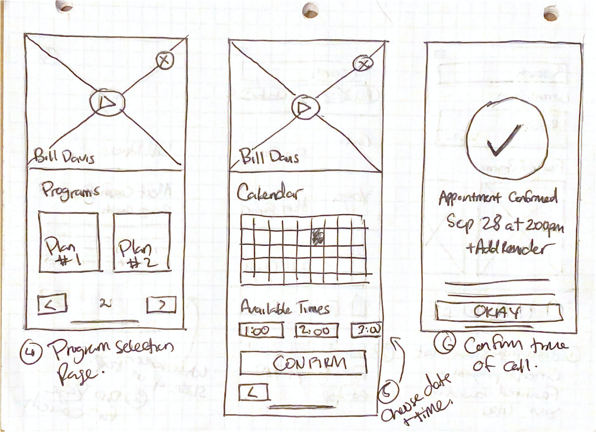 X
Bill Davis
Programs
Plan
#1
Plan
#2
<
2
>
4 Program selection
Page.
X
Bill Davis
Calendar
Available Times
1:00
2:00
3:00
CONFIRM
<
5
Choose date
+ times
Appointment Confirmed
Sep 28 at 2:00pm
+ Add Reminder
OKAY
6 Confirm time
of call.